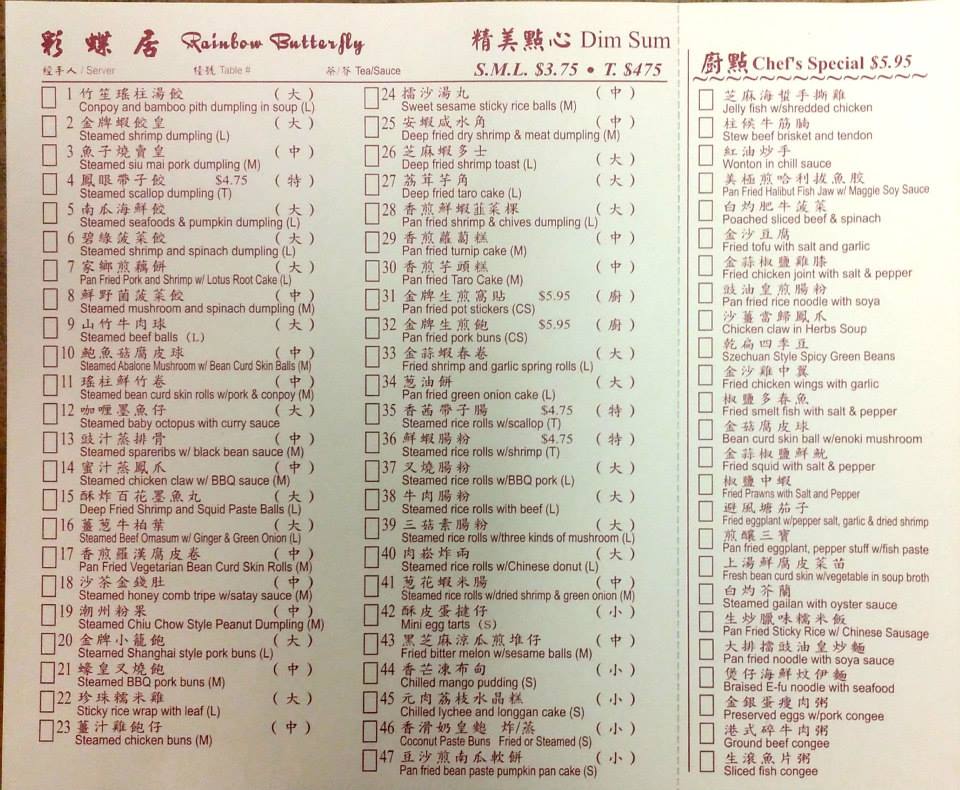 彩蝶居 Rainbow Butterfly
經手人 / Server 檯號 Table # 茶/芥 Tea/Sauce
精美點心 Dim Sum
S.M.L. $3.75 • T. $475
1 竹笙瑤柱湯餃 (大)
Conpoy and bamboo pith dumpling in soup (L)
2 金牌蝦餃皇 (大)
Steamed shrimp dumpling (L)
3 魚子燒賣皇 (中)
Steamed siu mai pork dumpling (M)
4 鳳眼帶子餃 $4.75 (特)
Steamed scallop dumpling (T)
5 南瓜海鮮餃 (大)
Steamed seafoods & pumpkin dumpling (L)
6 碧綠菠菜餃 (大)
Steamed shrimp and spinach dumpling (L)
7 家鄉煎藕餅 (大)
Pan Fried Pork and Shrimp w/ Lotus Root Cake (L)
8 鮮野菌菠菜餃 (中)
Steamed mushroom and spinach dumpling (M)
9 山竹牛肉球 (大)
Steamed beef balls (L)
10 鮑魚菇腐皮球 (中)
Steamed Abalone Mushroom w/ Bean Curd Skin Balls (M)
11 瑤柱鮮竹卷 (中)
Steamed bean curd skin rolls w/pork & conpoy (M)
12 咖喱墨魚仔 (大)
Steamed baby octopus with curry sauce
13 豉汁蒸排骨 (中)
Steamed spareribs w/ black bean sauce (M)
14 蜜汁蒸鳳爪 (中)
Steamed chicken claw w/ BBQ sauce (M)
15 酥炸百花墨魚丸 (大)
Deep Fried Shrimp and Squid Paste Balls (L)
16 薑葱牛柏葉 (大)
Steamed Beef Omasum w/ Ginger & Green Onion (L)
17 香煎羅漢腐皮卷 (中)
Pan Fried Vegetarian Bean Curd Skin Rolls (M)
18 沙茶金錢肚 (中)
Steamed honey comb tripe w/satay sauce (M)
19 潮州粉果 (中)
Steamed Chiu Chow Style Peanut Dumpling (M)
20 金牌小籠飽 (大)
Steamed Shanghai style pork buns (L)
21 蠔皇叉燒飽 (中)
Steamed BBQ pork buns (M)
22 珍珠糯米雞 (大)
Sticky rice wrap with leaf (L)
23 薑汁雞飽仔 (中)
Steamed chicken buns (M)
24 擂沙湯丸 (中)
Sweet sesame sticky rice balls (M)
25 安蝦咸水角 (中)
Deep fried dry shrimp & meat dumpling (M)
26 芝麻蝦多士 (大)
Deep fried shrimp toast (L)
27 荔茸芋角 (大)
Deep fried taro cake (L)
28 香煎鮮蝦韮菜粿 (大)
Pan fried shrimp & chives dumpling (L)
29 香煎蘿蔔糕 (中)
Pan fried turnip cake (M)
30 香煎芋頭糕 (中)
Pan fried Taro Cake (M)
31 金牌生煎窩貼 $5.95 (廚)
Pan fried pot stickers (CS)
32 金牌生煎飽 $5.95 (廚)
Pan fried pork buns (CS)
33 金蒜蝦春卷 (大)
Fried shrimp and garlic spring rolls (L)
34 葱油餅 (大)
Pan fried green onion cake (L)
35 香茜帶子腸 $4.75 (特)
Steamed rice rolls w/scallop (T)
36 鮮蝦腸粉 $4.75 (特)
Steamed rice rolls w/shrimp (T)
37 叉燒腸粉 (大)
Steamed rice rolls w/BBQ pork (L)
38 牛肉腸粉 (大)
Steamed rice rolls with beef (L)
39 三菇素腸粉 (大)
Steamed rice rolls w/three kinds of mushroom (L)
40 肉崧炸両 (大)
Steamed rice rolls w/Chinese donut (L)
41 葱花蝦米腸 (中)
Steamed rice rolls w/dried shrimp & green onion (M)
42 酥皮蛋撻仔 (小)
Mini egg tarts (S)
43 黑芝麻涼瓜煎堆仔 (中)
Fried bitter melon w/sesame balls (M)
44 香芒凍布甸 (小)
Chilled mango pudding (S)
45 元肉荔枝水晶糕 (小)
Chilled lychee and longgan cake (S)
46 香滑奶皇飽 炸/蒸 (小)
Coconut Paste Buns Fried or Steamed (S)
47 豆沙煎南瓜軟餅 (小)
Pan fried bean paste pumpkin pan cake (S)
廚點 Chef's Special $5.95
芝麻海蜇手撕雞
Jelly fish w/shredded chicken
柱候牛筋腩
Stew beef brisket and tendon
紅油炒手
Wonton in chill sauce
美極煎哈利拔魚胶
Pan Fried Halibut Fish Jaw w/ Maggie Soy Sauce
白灼肥牛菠菜
Poached sliced beef & spinach
金沙豆腐
Fried tofu with salt and garlic
金蒜椒鹽雞膝
Fried chicken joint with salt & pepper
豉油皇煎腸粉
Pan fried rice noodle with soya
沙薑當歸鳳爪
Chicken claw in Herbs Soup
乾扁四季豆
Szechuan Style Spicy Green Beans
金沙雞中翼
Fried chicken wings with garlic
椒鹽多春魚
Fried smelt fish with salt & pepper
金菇腐皮球
Bean curd skin ball w/enoki mushroom
金蒜椒鹽鮮魷
Fried squid with salt & pepper
椒鹽中蝦
Fried Prawns with Salt and Pepper
避風塘茄子
Fried eggplant w/pepper salt, garlic & dried shrimp
煎釀三寶
Pan fried eggplant, pepper stuff w/fish paste
上湯鮮腐皮菜苗
Fresh bean curd skin w/vegetable in soup broth
白灼芥蘭
Steamed gailan with oyster sauce
生炒臘味糯米飯
Pan Fried Sticky Rice w/ Chinese Sausage
大排擋豉油皇炒麵
Pan fried noodle with soya sauce
煲仔海鮮炆伊麵
Braised E-fu noodle with seafood
金銀蛋瘦肉粥
Preserved eggs w/pork congee
港式碎牛肉粥
Ground beef congee
生滾魚片粥
Sliced fish congee